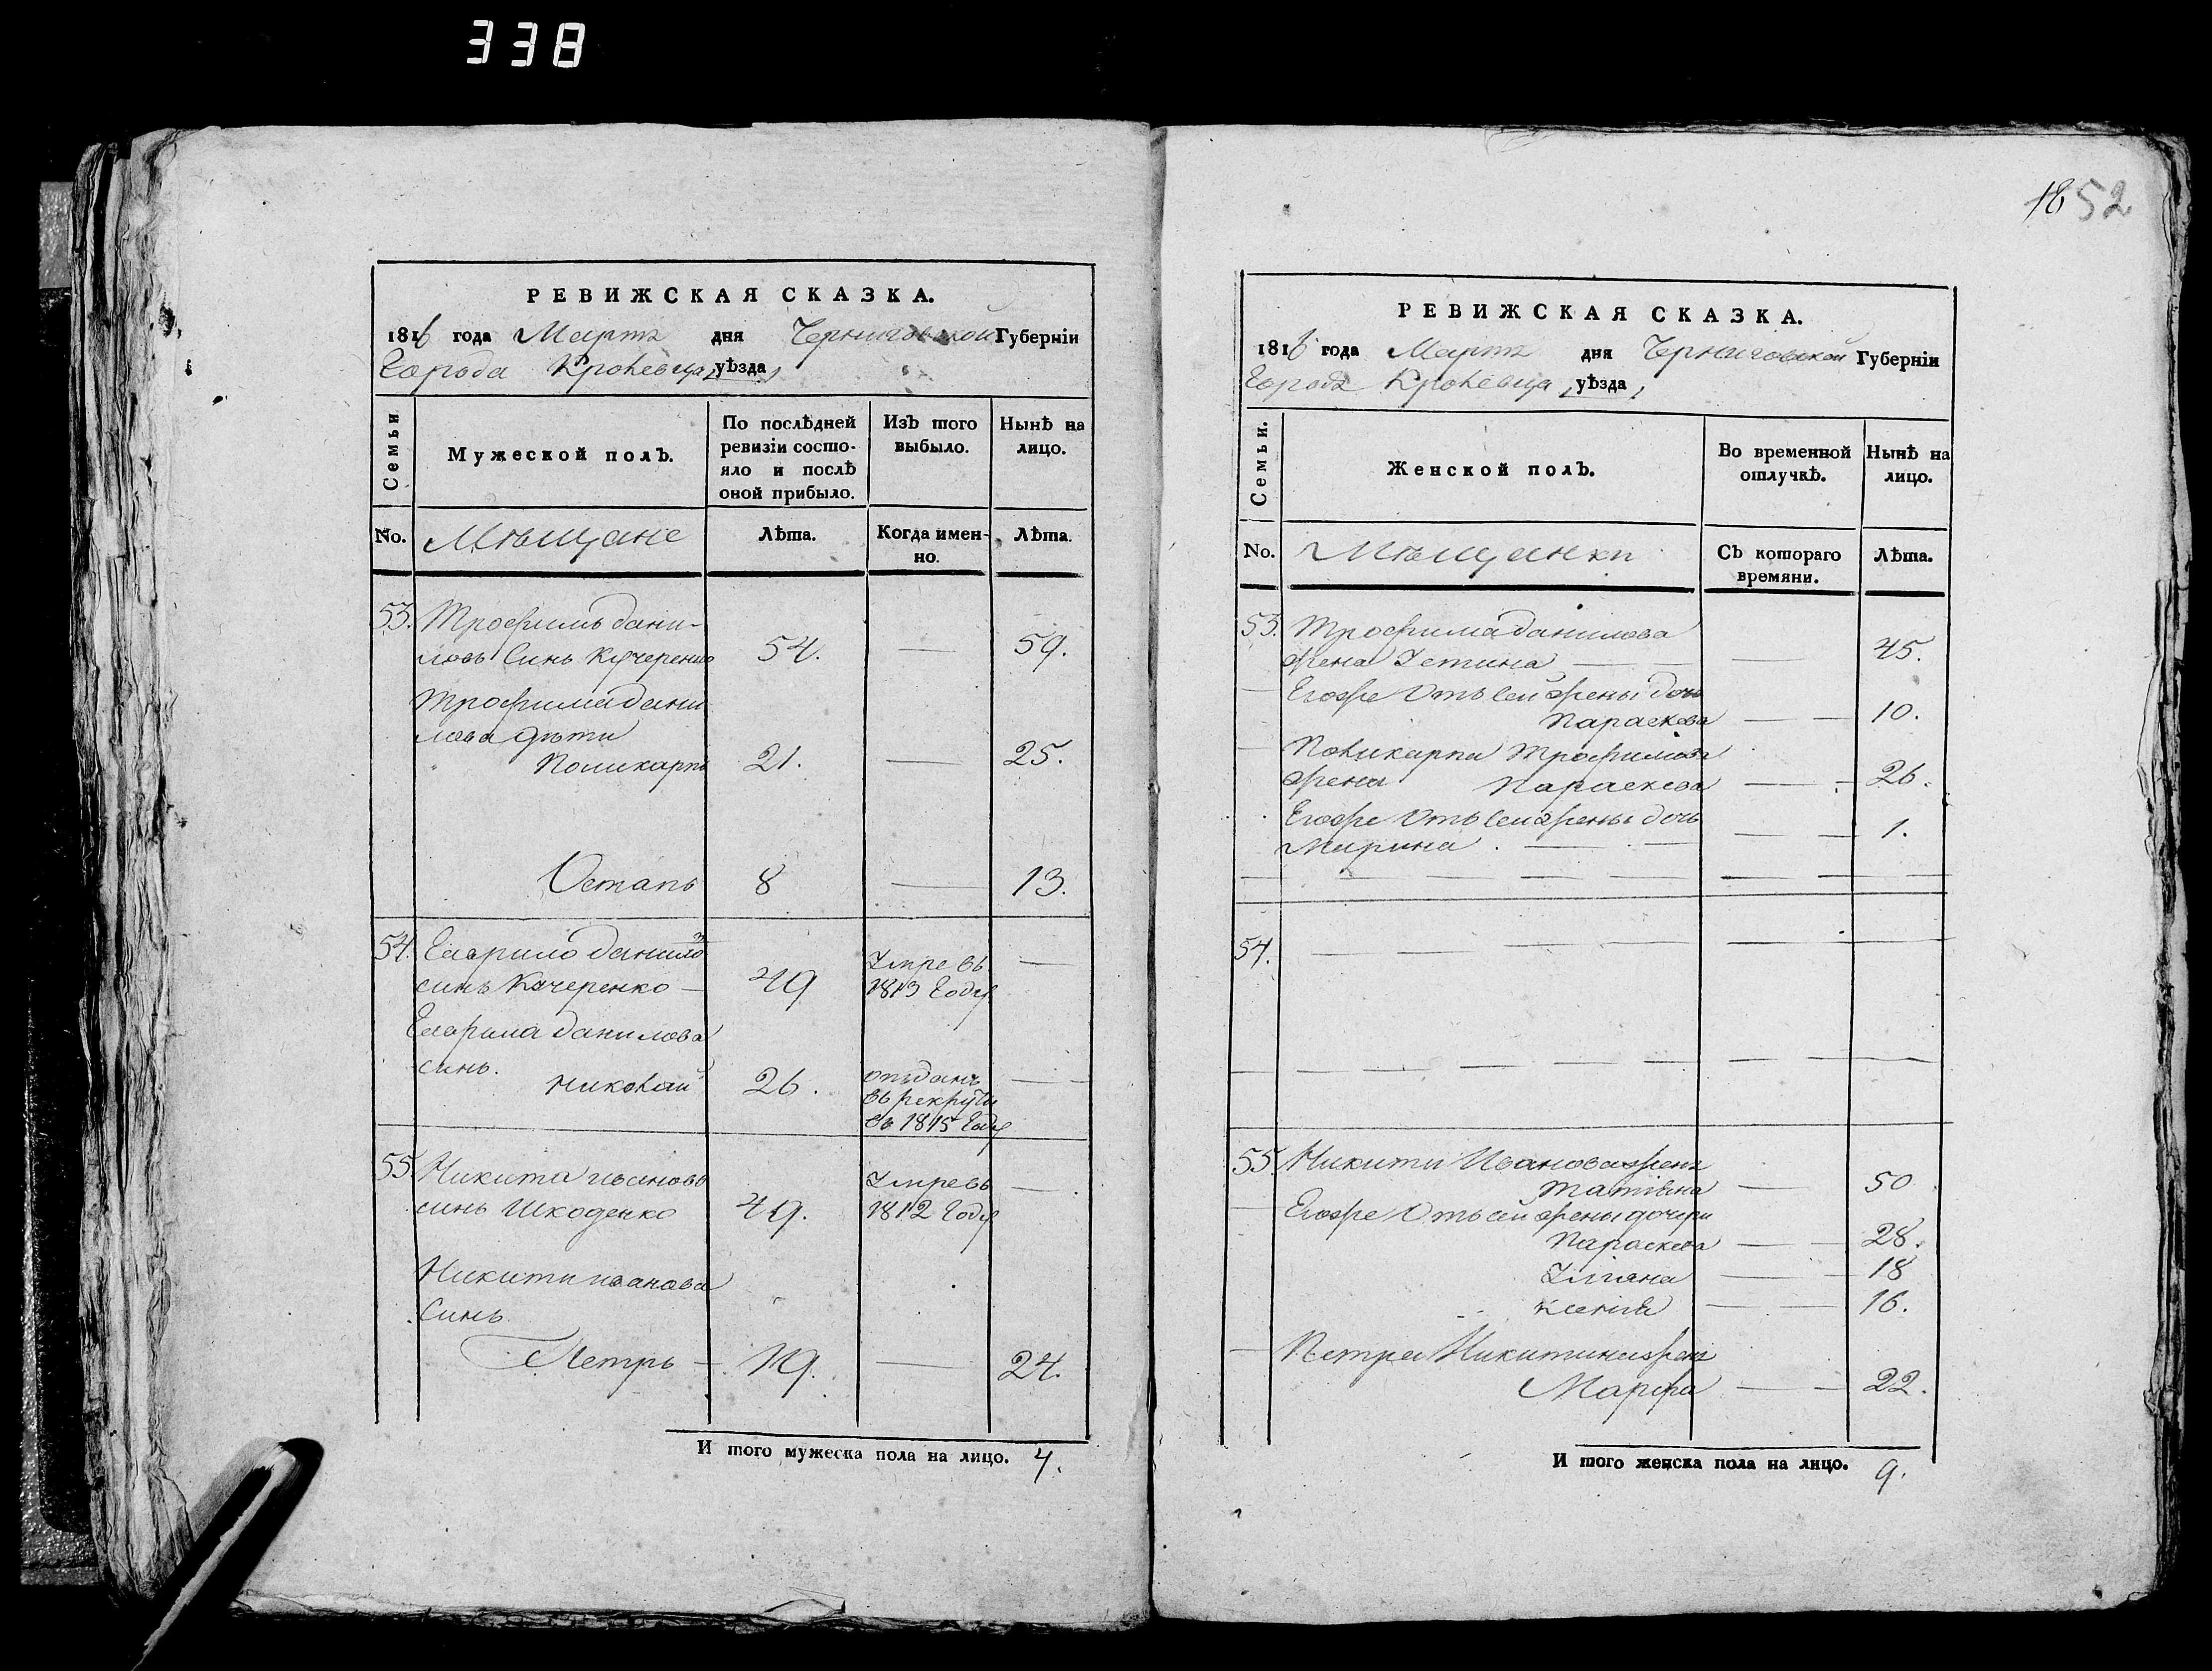 338
18 52
РЕВИЖСКАЯ СКАЗКА.
1816 года Марта дня Черниговской Губерніи
Города Кролевца, уѣзда,
Семьи
Мужеской полъ.
По послѣдней ревизіи состояло и послѣ оной прибыло.
Изъ того выбыло.
Нынѣ на лицо.
No. Мѣщане
Лѣта.
Когда именно.
Лѣта.
53. Трофимъ Дани-
ловъ Синъ Кучеренко 54. — 59.
Трофима Дани
лова дѣти
Поликарпъ 21. — 25.
Остапъ 8 — 13.
54. Гаврило Данило
синъ Кучеренко — 49 Умре въ —
1813 Году
Гаврила Данилова
синъ.
Николай 26. отъданъ —
въ рекруты
въ 1815 Году
55. Никита ивановъ Умре въ —
синъ Шкоденко 49. 1812 Году
Никити иванова
Синъ
Петръ — 19. — 24.
И того мужеска пола на лицо. 4.
РЕВИЖСКАЯ СКАЗКА.
1816 года Марта дня Черниговской Губерніи
Города Кролевца, уѣзда,
Семьи.
Женской полъ.
Во временной отлучкѣ.
Нынѣ на лицо.
No. Мѣщанки
Съ котораго времяни.
Лѣта.
53. Трофима Данилова
жена Устина — — — 45.
— Егоже Отъ сей жены дочь
Параскева — — 10.
— Поликарпа Трофимова
жена Параскева — — 26.
Егоже Отъ сей жены дочь
Марина — — — — 1.
54. — — — — —
55. Никити Иванова жена
Татіяна — 50
— Егоже Отъ сей жены дочери
Параскева — — 28.
Уліяна — — 18
Ксенія — — 16.
— Петра Никитина жена
Марфа — — 22.
И того женска пола на лицо. 9.